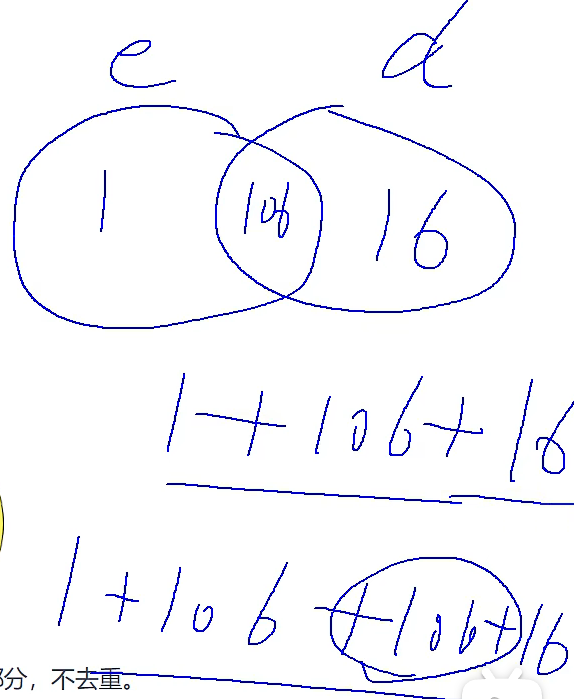 e d
1 106 16
1+106+16
1+106+106+16
部分，不去重。